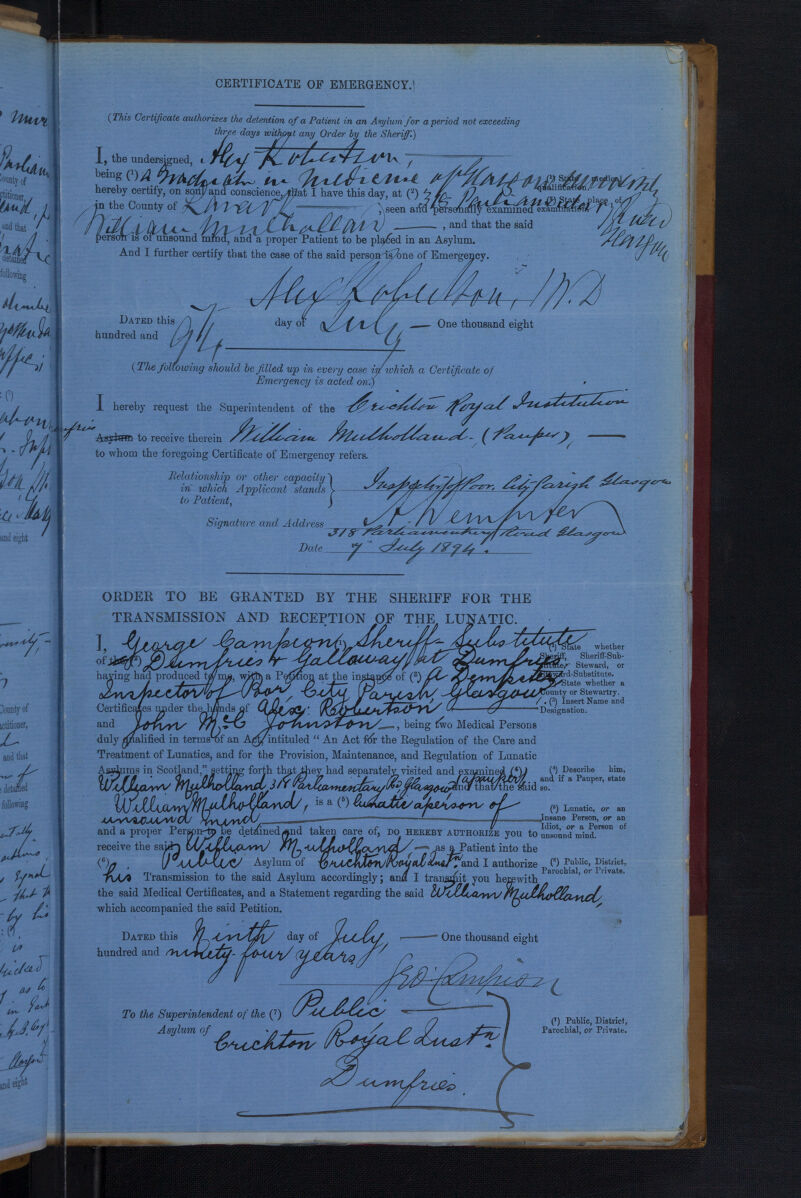 CERTIFICATE OF EMERGENCY.
(This Certificate authorizes the detention of a Patient in an Asylum for a period not exceeding
three days without any Order by the Sheriff.)
I, the undersigned, Alex Robertson,
being (1) a Graduate in Medicine of Glasgow University (1) State medical qualification.
hereby certify, on soul and conscience, that I have this day, at (2) 318 Parliamentary Road Glasgow (2) State place of examination.
in the County of Lanark, seen and personally examined
William Mulholland, and that the said
person is of unsound mind, and a proper Patient to be placed in an Asylum.
And I further certify that the case of the said person is one of Emergency.
Alex Robertson, M.D
DATED this 7th day of July One thousand eight
hundred and
(The following should be filled up in every case in which a Certificate of
Emergency is acted on.)
I hereby request the Superintendent of the Crichton Royal Institution
Dumfries Asylum to receive therein William Mulholland, (Pauper),
to whom the foregoing Certificate of Emergency refers.
Relationship or other capacity
in which Applicant stands
to Patient,
Inspector of Poor. City Parish Glasgow
Signature and Address A. Dempster
318 Parliamentary Road Glasgow
Date 7 July 1894.
ORDER TO BE GRANTED BY THE SHERIFF FOR THE
TRANSMISSION AND RECEPTION OF THE LUNATIC.
I, George Campion, Sheriff-Substitute (1) State whether Sheriff, Sheriff-Substitute, Steward, or Steward-Substitute.
of the (2) Dumfries & Galloway, at Dumfries (2) State whether a County or Stewartry.
having had produced to me, with a Petition at the instance of (3) A Dempster
Inspector of Poor City Parish, Glasgow, (3) Insert Name and Designation.
Certificates under the hands of Alex. Robertson
and John McC Johnston, being two Medical Persons
duly qualified in terms of an Act, intituled "An Act for the Regulation of the Care and
Treatment of Lunatics, and for the Provision, Maintenance, and Regulation of Lunatic
Asylums in Scotland," setting forth that they had separately visited and examined (4)
William Mulholland, 318 Parliamentary Rd Glasgow, (a pauper), and that the said
(4) Describe him, and if a Pauper, state so.
William Mulholland, is a (5) lunatic a person of
unsound mind
(5) Lunatic, or an Insane Person, or an Idiot, or a Person of unsound mind.
and a proper Person to be detained and taken care of, DO HEREBY AUTHORIZE you to
receive the said William Mulholland as a Patient into the
(6) Public Asylum of Crichton Royal Instn. and I authorize
(6) Public, District, Parochial, or Private.
his Transmission to the said Asylum accordingly; and I transmit you herewith
the said Medical Certificates, and a Statement regarding the said William Mulholland,
which accompanied the said Petition.
DATED this Ninth day of July, One thousand eight
hundred and ninety-four years
Geo. Campion
To the Superintendent of the (7) Public
Asylum of Crichton Royal Instn
Dumfries.
(7) Public, District, Parochial, or Private.